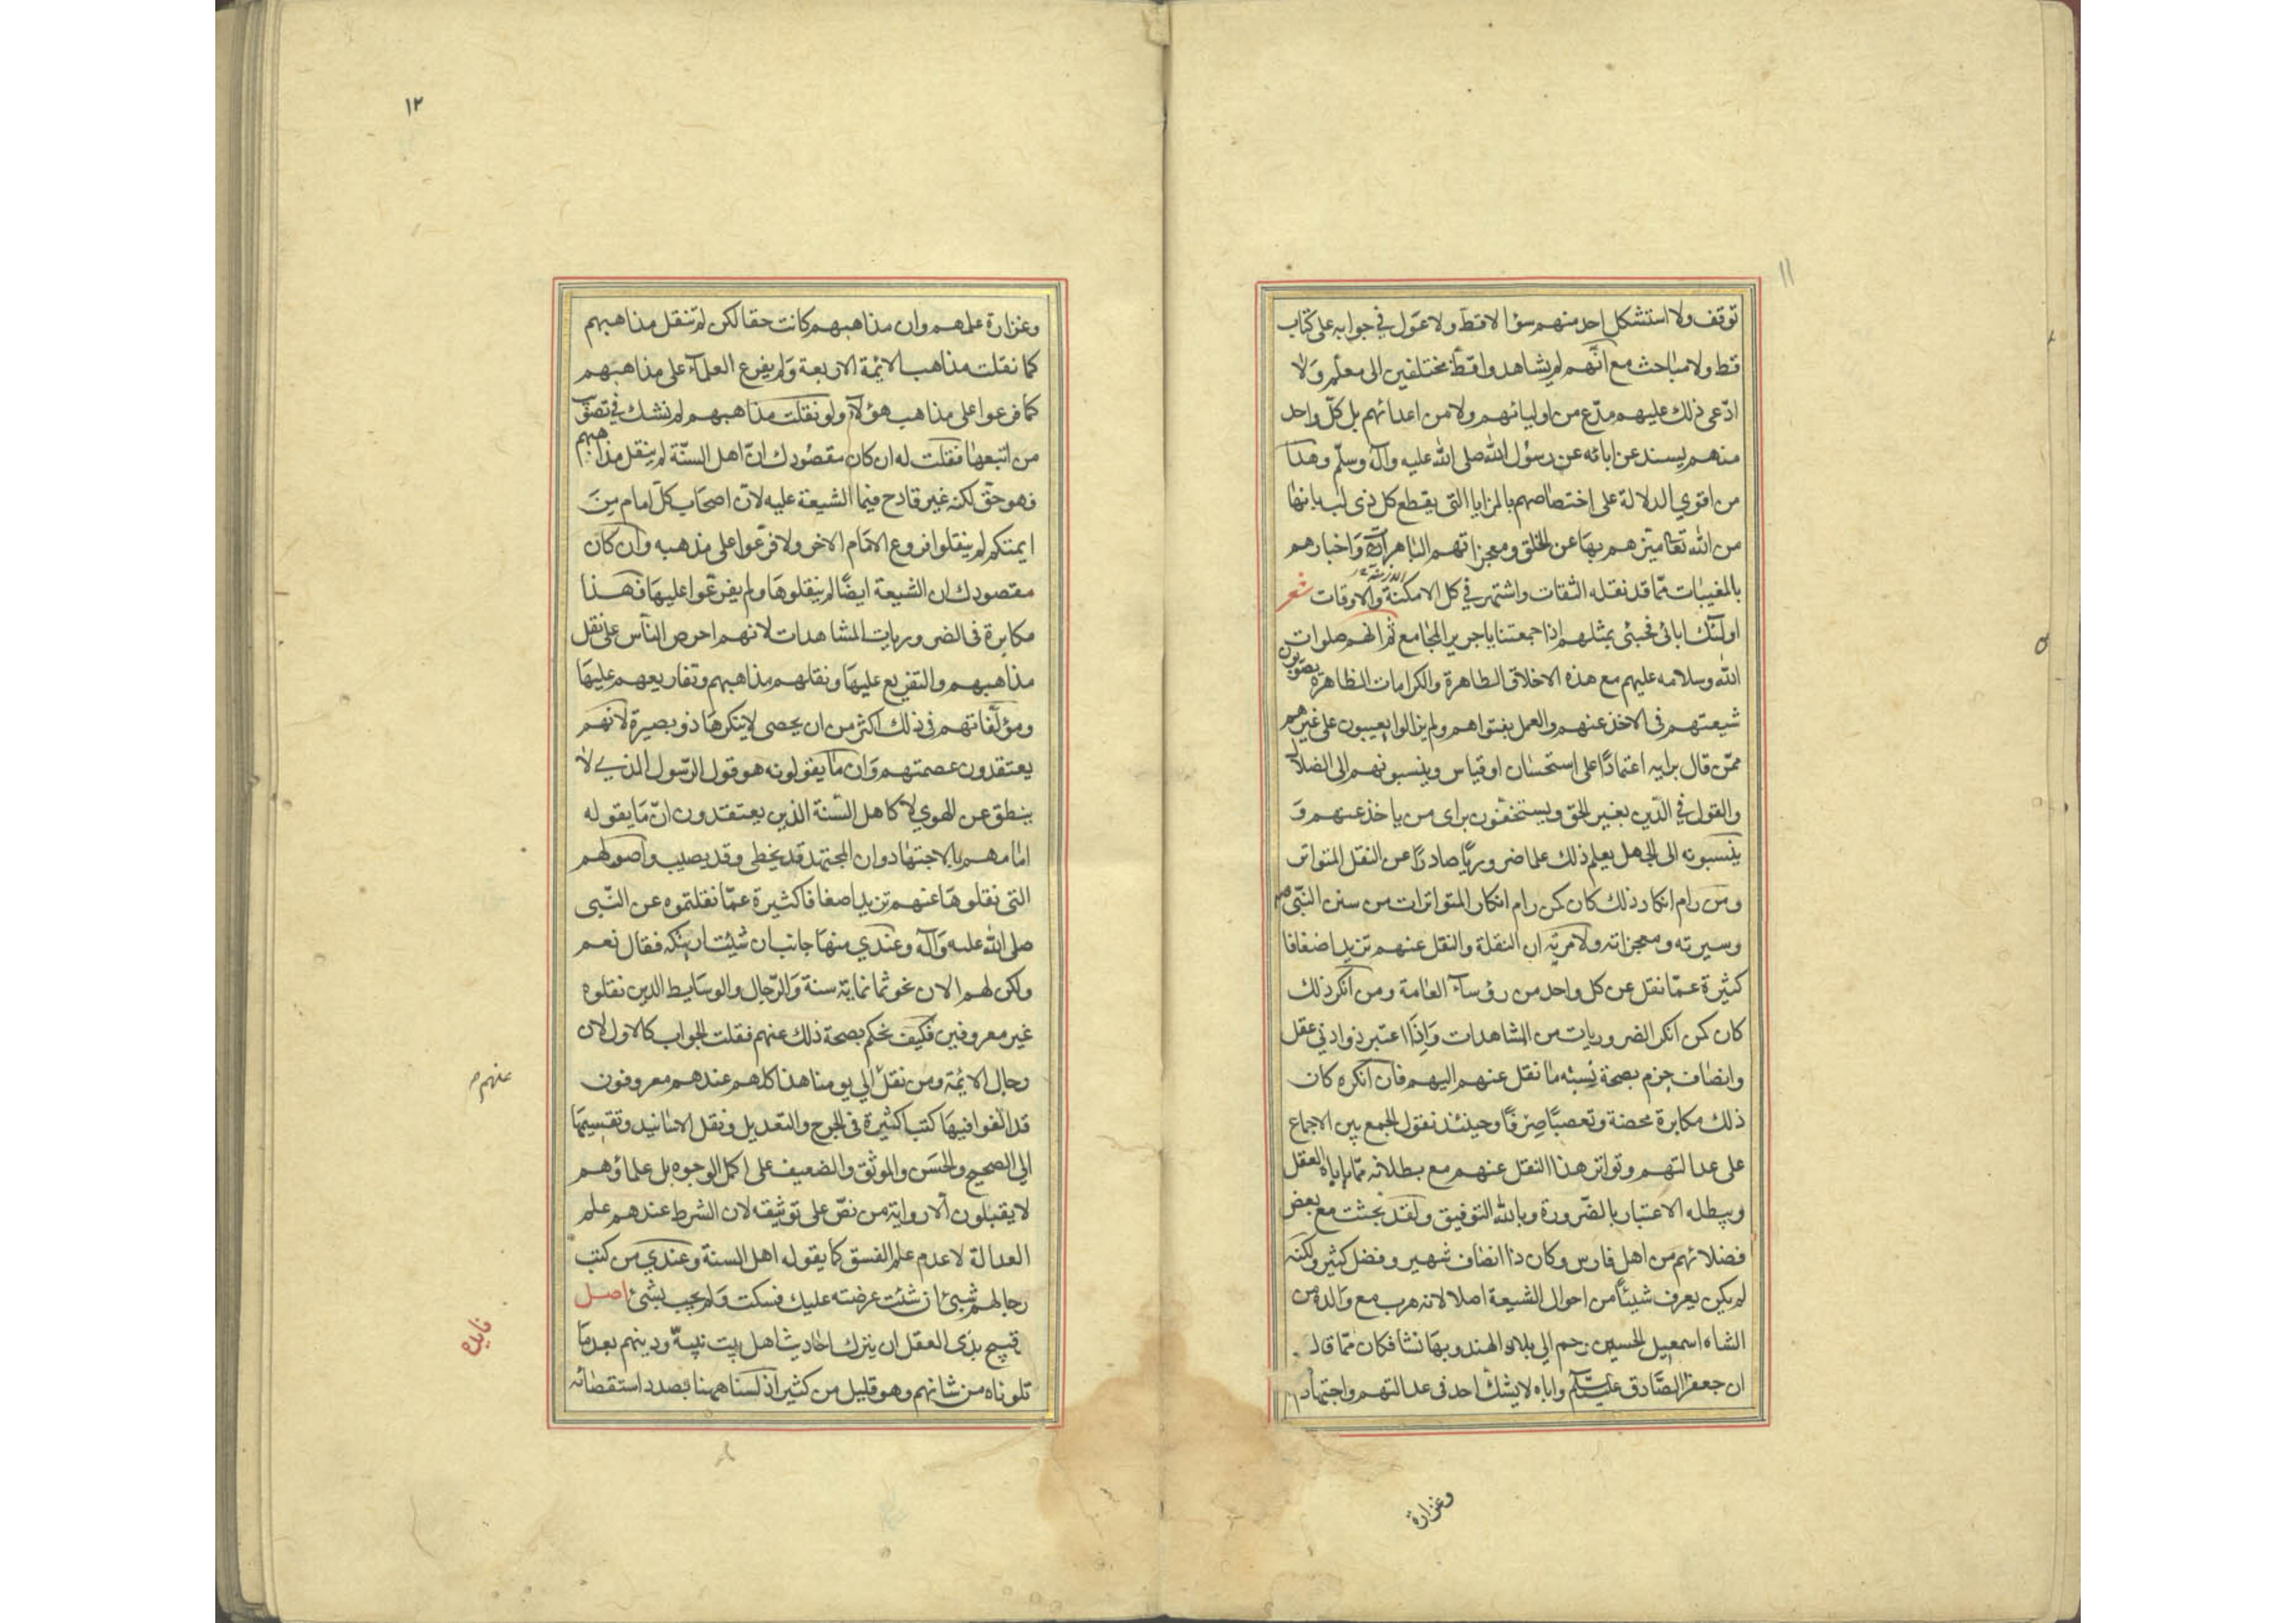 ١١
توقف ولا استشكل احد منهم سؤالا قط ولا عوّل في جوابه على كتاب
قط ولا مباحث مع انّهم لم يشاهدوا قط مختلفين الى معلّم ولا
ادّعى ذلك عليهم مدّع من اوليائهم ولا من اعدائهم بل كلّ واحد
منهم يسند عن ابائه عن رسول الله صلى الله عليه وآله وسلّم وهذا
من اقوي الدلالة على اختصاصهم بالمزايا التي يقطع كل ذى لب بانها
من الله تعا ميزهم بها عن الخلق ومعجزاتهم الباهرات واخبارهم
بالمغيبات مما قد نقله الثقات واشتهر في كل الامكنة والاوقات شعر
اولئك ابائى فجئنى بمثلهم اذا جمعتنا يا جرير المجامع ثم انهم صلوات
الله وسلامه عليهم مع هذه الاخلاق الطاهرة والكرامات الظاهرة يصوبون
شيعتهم فى الاخذ عنهم والعمل بفتواهم ولم يزالوا يعيبون على غيرهم
ممّن قال برايه اعتمادًا على استحسان او قياس وينسبونهم الى الضلال
والقول في الدّين بغير الحق ويستخفّون براى من ياخذ عنهم و
ينسبونه الى الجهل يعلم ذلك علما ضروريًّا صادرًا عن النقل المتواتر
ومن رام انكار ذلك كان كمن رام انكار المتواترات من سنن النّبيّ ص
وسيرته ومعجزاته ولا مرية ان النقلة والنقل عنهم تزيد اضعافا
كثيرة عمّا نقل عن كل واحد من رؤساء العامة ومن انكر ذلك
كان كمن انكر الضروريات من المشاهدات وَاِذَا اعتبر ذو ادنى عقل
وانصاف جزم بصحة نسبته ما نقل عنهم اليهم فان انكره كان
ذلك مكابرة محضة وتعصبًا صِرفًا وحينئذ نقول الجمع بين الاجماع
على عدالتهم وتواتر هذا النقل عنهم مع بطلانه ممّا ياباه العقل
ويبطله الاعتبار بالضّرورة وبالله التوفيق ولقد بحثت مع بعض
فضلائهم من اهل فارس وكان ذا انصاف شهير وفضل كثير ولكنه
لم يكن يعرف شيئًا من احوال الشيعة اصلا لانه هرب مع والده من
الشاه اسمعيل الحسين رحم الي بلاد الهند وبها نشا فكان ممّا قال
ان جعفر الصّادق عليه السلام واباه لا يشك احد فى عدالتهم واجتهادهم
وغزارة
١٢
وغزارة علمهم وان مذاهبهم كانت حقا لكن لم تنقل مذاهبهم
كما نقلت مذاهب الائمة الاربعة وَلم يفرع العلمآء على مذاهبهم
كما فرعوا على مذاهب هؤلاء ولو نقلت مذاهبهم لم نشك في تصويب
من اتبعها فقلت له ان كان مقصودك انّ اهل السنّة لم ينقل مذاهبهم
فهو حقّ لكنه غير قادح فيما الشيعة عليه لانّ اصحاب كلّ امام من
ايمتكم لم ينقلوا فروع الامام الاخر ولا فرّعوا على مذهبه وان كان
مقصودك ان الشيعة ايضًا لم ينقلوها ولم يفرعوا عليها فهذا
مكابرة فى الضروريات المشاهدات لانهم احرص الناس على نقل
مذاهبهم والتفريع عليها ونقلهم مذاهبهم وتفاريعهم عليها
ومؤلّفاتهم فى ذلك اكثر من ان يحصى لا ينكرها ذو بصيرة لانهم
يعتقدون عصمتهم وَان ما يقولونه هو قول الرّسول الذي لا
ينطق عن الهوي لا كاهل السّنة الذين يعتقدون انّ مَا يقوله
امامهم بالاجتهاد وان المجتهد قد يخطى وقد يصيب واصولهم
التى نقلوها عنهم تزيد اضعافا كثيرة عمّا نقلتموه عن النّبى
صلى الله عليه وَآله وعندي منها جانب ان شئت اريتكه فقال نعم
ولكن لهم الان نحو ثمانماية سنة وَالرّجال والوسَايط الذين نقلوه
غير معروفين فكيف نحكم بصحة ذلك عنهم فقلت الجواب كالاول لان
رجال الائمة ومن نقل الي يومنا هذا كلهم عندهم معروفون
عنهم ص
قد الّفوا فيها كتبا كثيرة فى الجرح والتعديل ونقل الاسانيد وتقسيمها
الي الصحيح والحسَن والموثق والضعيف على اكمل الوجوه بل علماؤهم
لا يقبلون الّا رواية من نصّ على توثيقه لان الشرط عندهم علم
العدالة لا عدم علم الفسق كما يقوله اهل السنة وعندي من كتب
رجالهم شيئ ان شئت عرضته عليك فسكت وَلم يجب بشئ اصل
فايده
قبيح بذى العقل ان يترك احاديث اهل بيت نبيّه ودينهم بعد ما
تلوناه من شانهم وهو قليل من كثير اذ لسنا ههنا بصدد استقصائه